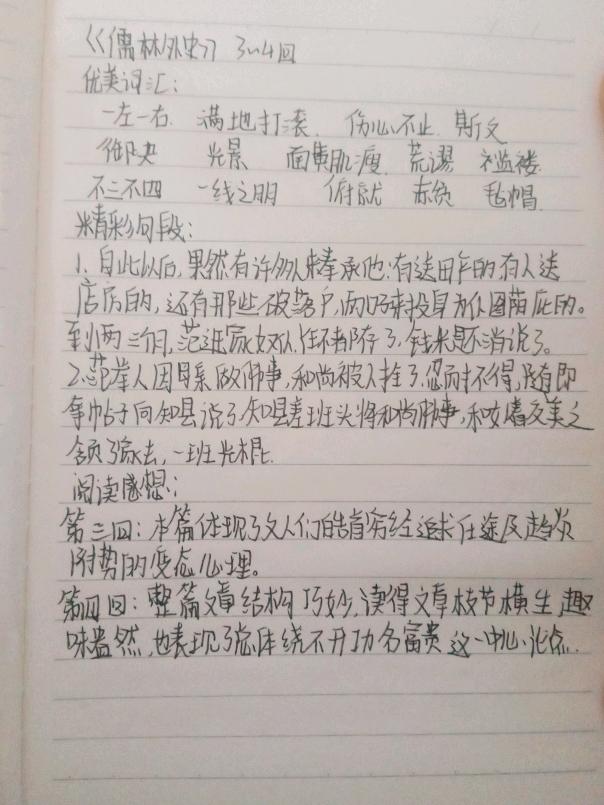 《儒林外史》 3~4回
优美词汇：
一左一右. 满地打滚. 伤心不止. 斯文
御史 光景 面黄肌瘦. 荒谬 褴褛.
不三不四 一线之明 俯就 赤贫 毡帽.
精彩句段：
1、自此以后, 果然有许多人来奉承他:有送田产的有人送
店房的, 还有那些破落户, 两口子来投身为仆图荫庇的。
到两三个月, 范进家奴仆、丫环都有了, 钱米是不消说了。
2.范举人因母亲做佛事, 和尚被人拴了, 忍耐不得, 随即
拿帖子向知县说了. 知县差班头将和尚解放, 女人着交美之
领了家去, 一班光棍.
阅读感想:
第三回: 本篇体现了文人们皓首穷经追求仕途及趋炎
附势的变态心理。
第四回: 整篇文章结构巧妙, 读得文章枝节横生, 趣
味盎然, 也表现了总体绕不开功名富贵这一中心论点.